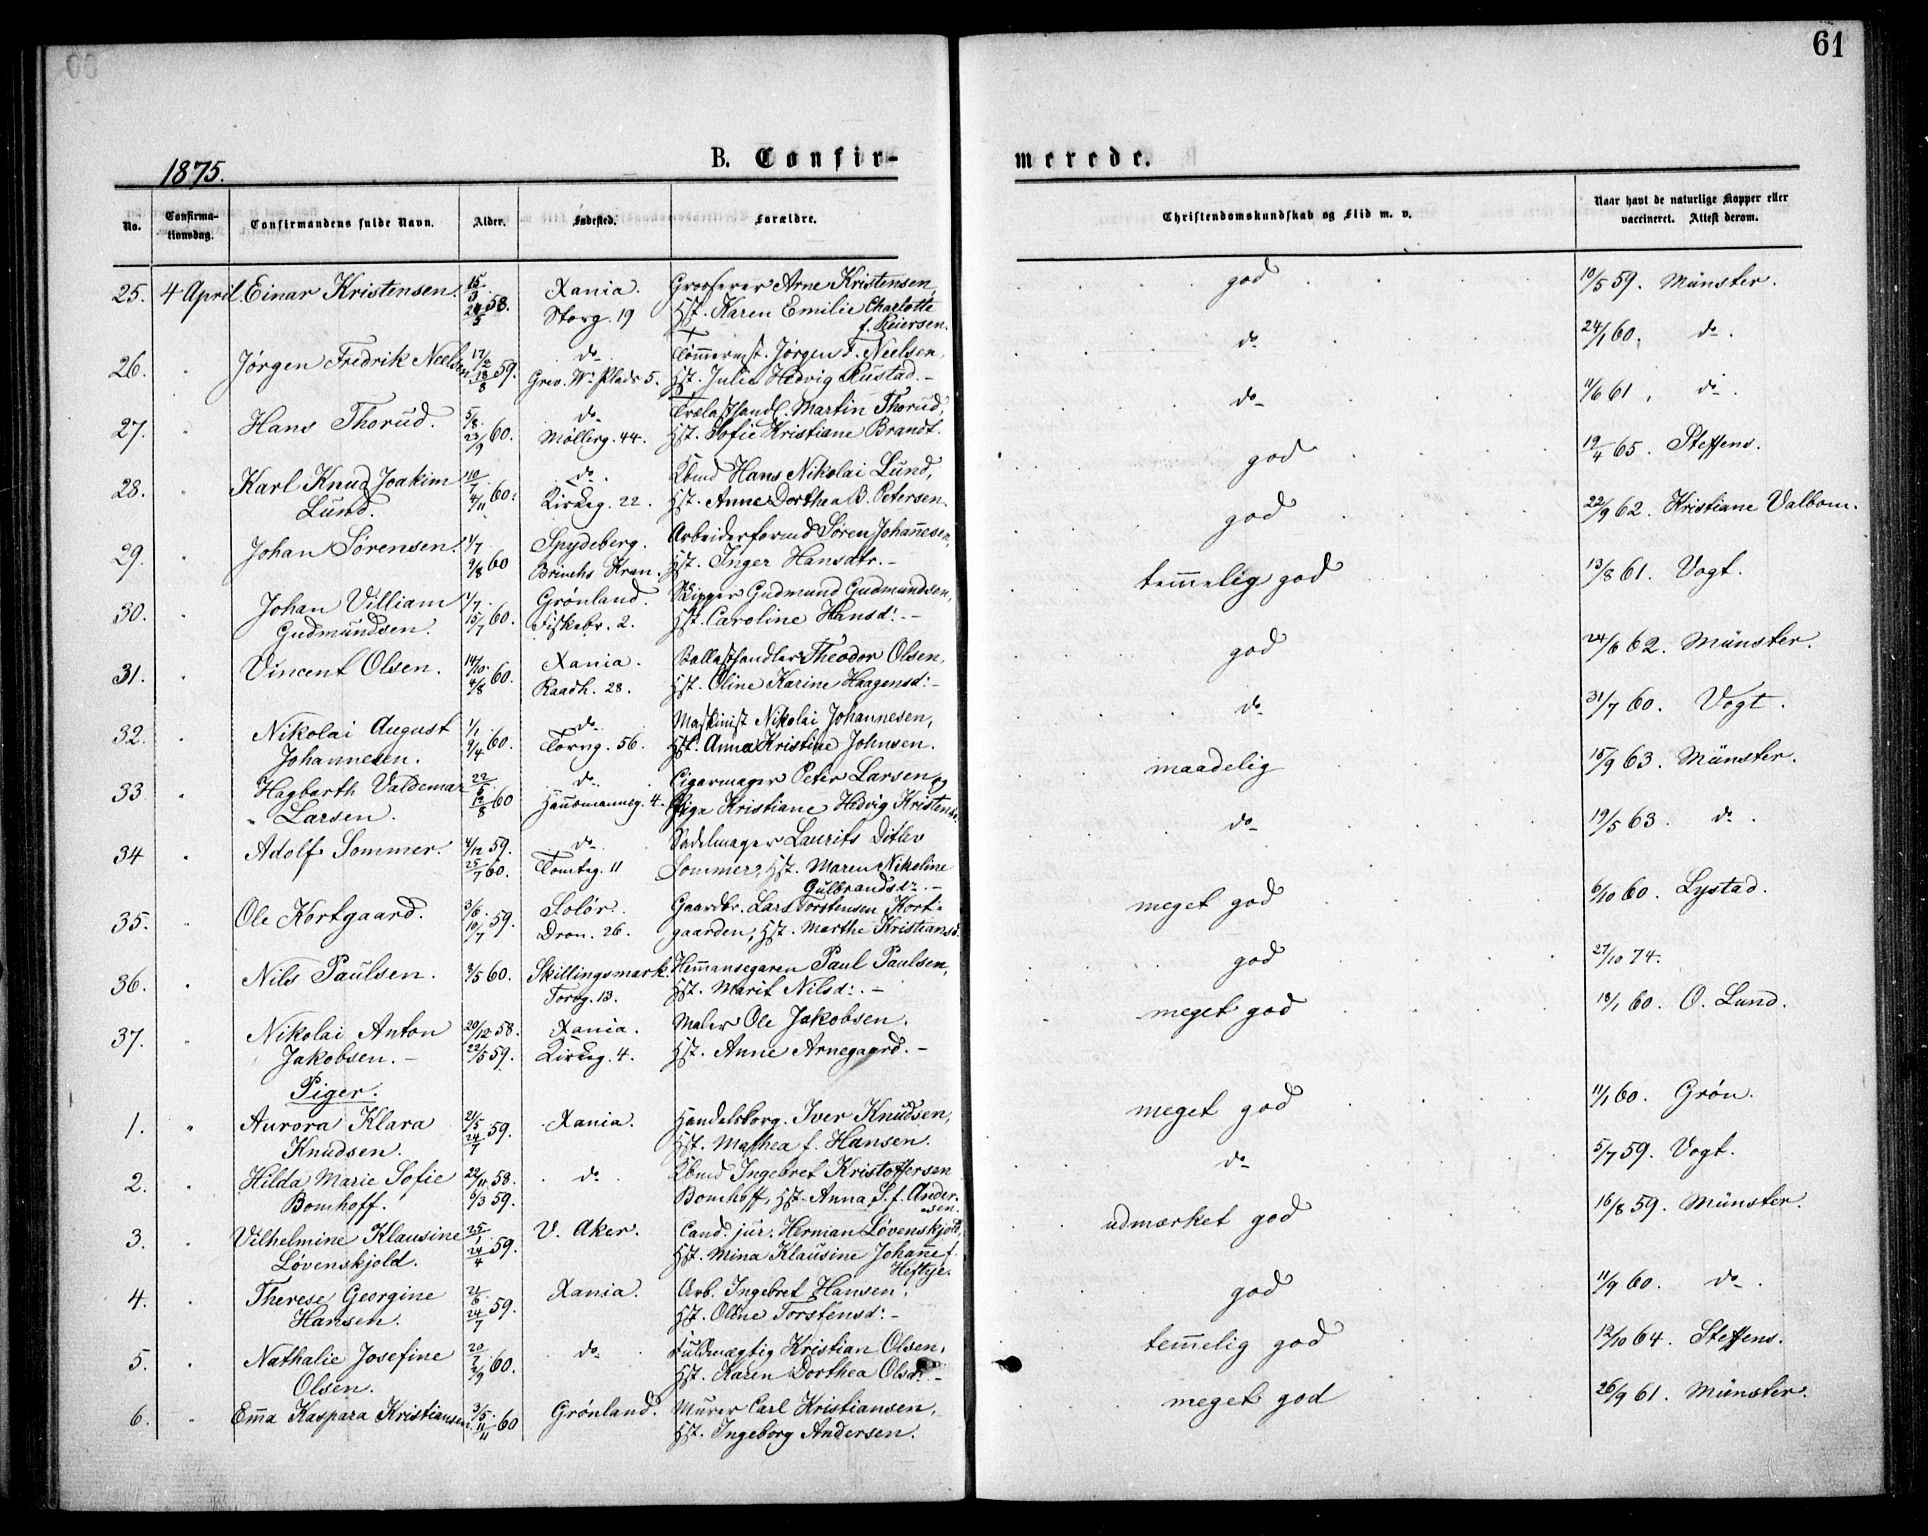 61
1875.
B. Confir-
merede.
No.
Confirma-
tionsdag.
Confirmandens fulde Navn.
Alder.
Fødested.
Forældre.
Christendomskundskab og Flid m. v.
Naar havt de naturlige Kopper eller
vaccineret. Attest derom.
25. 4 April. Einar Kristensen. 15/3 58. Xania. Grosserer Arne Kristensen, god 10/5 59. Münster.
24/5 Storg. 19 Hst. Karen Emilie Charlotte
f. Reiersen.
26. Jørgen Fredrik Neelsen 17/2 59. do Tømmermst. Jørgen F. Neelsen, do 24/1 60. do.
18/8 Grev. W. Plads 5. Hst. Julie Hedvig Rustad. -
27. Hans Thorud. 5/8 60. do Trælasthandl. Martin Thorud, do 11/6 61. do.
23/9 Møllerg. 44. Hst. Sofie Kristiane Brandt.
28. Karl Knud Joakim 10/7 60. do. Kbmd Hans Nikolai Lund, god 19/4 65. Steffens.
Lund. 4/11 Kirkeg. 22. Hst. Anne Dorthea B. Petersen.
29. Johan Sørensen. 1/7 60 Spydeberg. Arbeiderformd Søren Johannesen, god 22/9 62. Kristiane Valbom.
9/8 Brinchs Kran. Hst. Inger Hansdtr. -
30. Johan Villiam 1/7 60. Grønland. Skipper Gudmund Gudmundsen, temmelig god 13/8 61. Vogt.
Gudmundsen. 15/7 Fiskebr. 2. Hst. Caroline Hansd: -
31. Vincent Olsen. 14/10 60. Xania. Ballasthandler Theodor Olsen, god 24/6 62. Münster.
4/8 Raadh. 28. Hst. Oline Karine Haagensd: -
32. Nikolai August 1/1 60. do Maskinist Nikolai Johannesen, do 31/7 60. Vogt.
Johannesen. 9/4 Torvg. 56. Hst. Anna Kristine Johnsen.
33 Hagbarth Valdemar 22/5 60 do. Cigarmager Peter Larsen og maadelig 15/9 63. Münster.
Larsen. 12/8 Hausmannsg. 4. Pige Kristiane Hedvig Kristens.
34 Adolf Sommer. 4/12 59. do Sadelmager Laurits Ditlev do 19/5 63. do.
25/7 60. Tomteg. 11 Sommer, Hst. Maren Nikoline
Gulbrandsdr. -
35. Ole Kortgaard. 3/6 59. Solør. Gaardbr. Lars Torstensen Kort- meget god 6/10 60. Lystad.
10/7 Dron. 26. gaarden, Hst. Marthe Kristiansd.
36. Nils Paulsen. 3/5 60. Skillingsmark. Hemmansegaren Paul Paulsen, god 27/10 74.
Torvg. 13. Hst. Marit Nilsd: -
37. Nikolai Anton 20/12 58. Xania. Maler Ole Jakobsen. meget god 18/1 60. O. Lund.
Jakobsen. - 22/5 59. Kirkeg. 4. Hst. Anne Arnegaard. -
Piger.
1. Aurora Klara 21/5 59. Xania. Handelsborg. Iver Knudsen, meget god 11/1 60. Grøn.
Knudsen. 24/7 Hst. Mathea f. Hansen.
2. Hilda Marie Sofie 22/11 58. do Kbmd Ingebret Kristoffersen do 5/7 59. Vogt.
Bomhoff. 6/3 59. Bomhoff, Hst. Anna S. f. Ander-
sen.
3. Vilhelmine Klausine 25/1 59. V. Aker. Cand. jur. Herman Løvenskjold, udmærket god 16/8 59. Münster.
Løvenskjold. 24/4 Hst. Mina Klausine Johanne f.
Heftye.
4. Therese Georgine 21/6 59. Xania. Arb. Ingebret Hansen, god 11/9 60. do.
Hansen. 24/7 Hst. Oline Torstensd: -
5. Nathalie Josefine 20/7 60. do Fuldmægtig Kristian Olsen, temmelig god 12/10 64. Steffens.
Olsen. 2/9 Hst. Karen Dorthea Olsd: -
6. Emma Kaspara Kristiansen. 3/5 60 Grønland. Murer Carl Kristiansen, meget god 26/9 61. Münster.
11/11 Hst. Ingeborg Andersen.